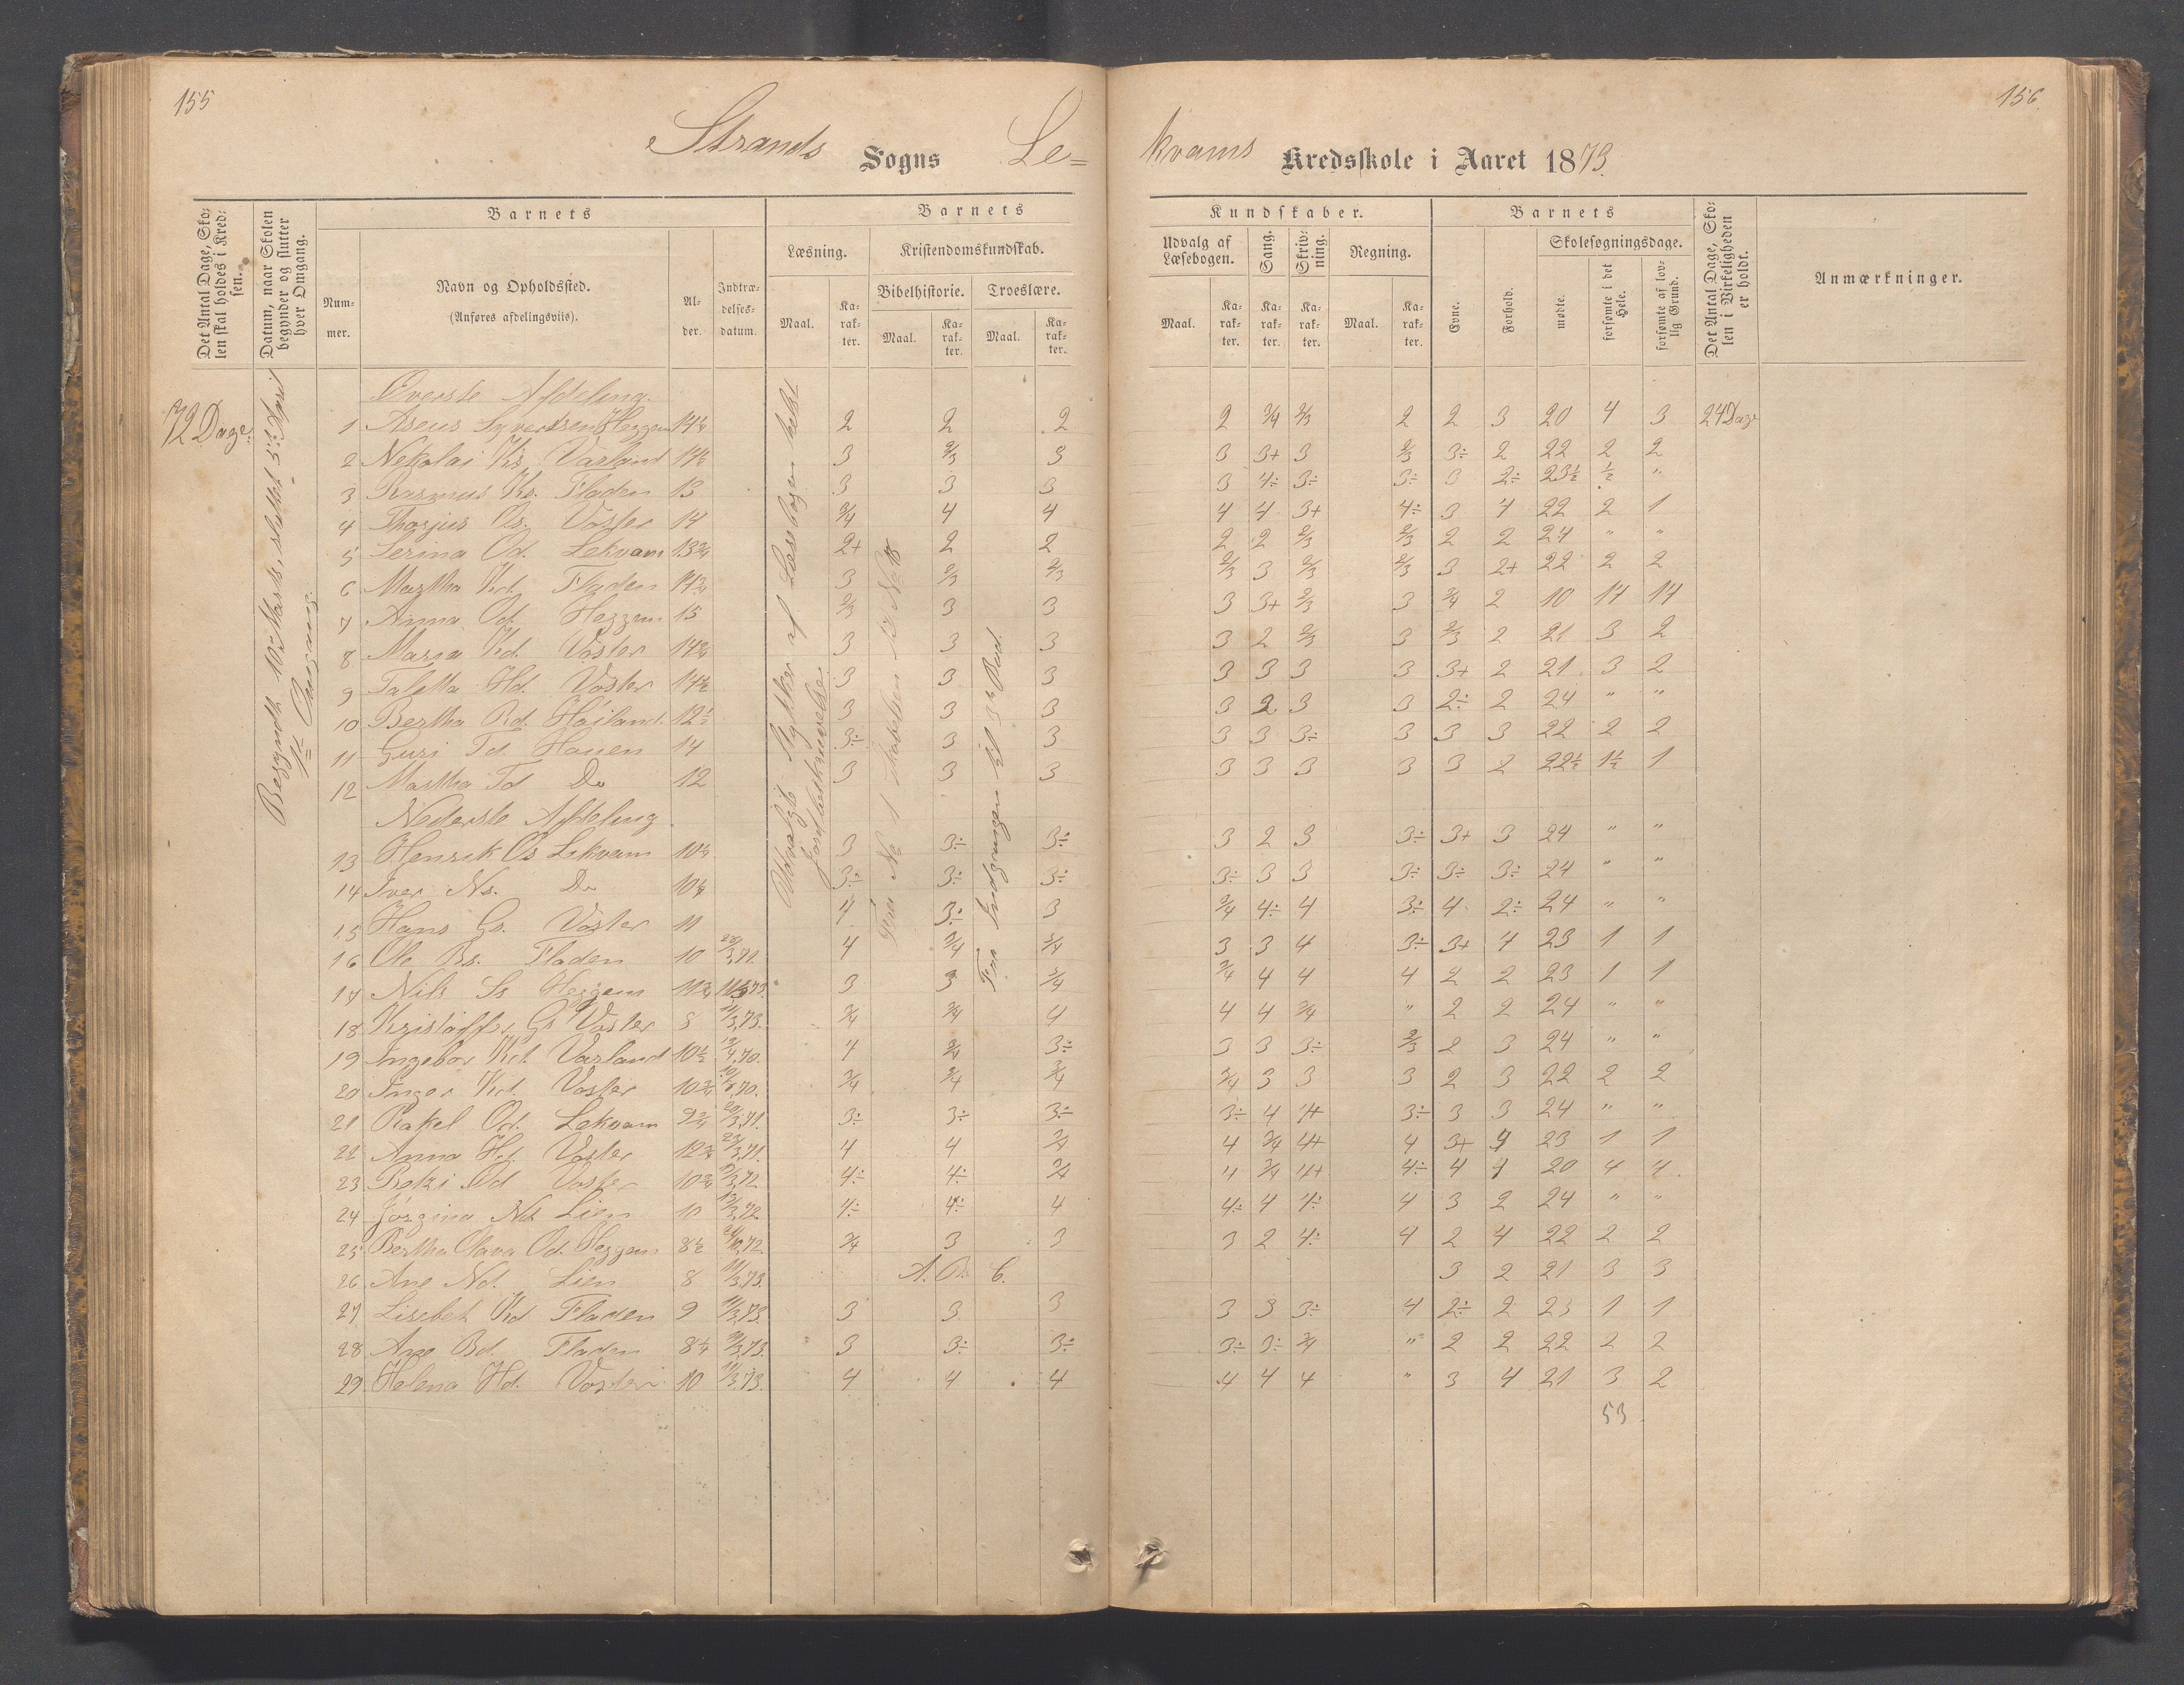 155
156
Strands Sogns Le=
kvams Kredsskole i Aaret 1873.
Det Antal Dage, Skolen skal holdes i Kredsen.
Datum, naar Skolen begynder og slutter hver Omgang.
Barnets
Nummer.
Navn og Opholdssted.
(Anføres afdelingsviis).
Alder.
Indtrædelsesdatum.
Barnets
Læsning.
Kristendomskundskab.
Bibelhistorie.
Troeslære.
Maal.
Karakter.
Maal.
Karakter.
Maal.
Karakter.
Kundskaber.
Udvalg af Læsebogen.
Sang.
Skrivning.
Regning.
Maal.
Karakter.
Karakter.
Karakter.
Maal.
Karakter.
Barnets
Evne.
Forhold.
Skolesøgningsdage.
mødte.
forsømte i det Hele.
forsømte af lovlig Grund.
Det Antal Dage, Skolen i Virkeligheden er holdt.
Anmærkninger.
72 Dage.
Begyndt 10de Marts, sluttet 5te April
1ste Omgang.
Øverste Afdeling.
1 Aseus Syvertsen Heggem 14¼ 2 2 2 2 3/4 2/3 2 2 3 20 4 3 24 Dage
2 Nekolai Ks. Varland 14½ 3 2/3 3 3 3+ 3 2/3 3÷ 2 22 2 2
3 Rasmus Ks. Fladen 13 3 3 3 3 4÷ 3÷ 3÷ 3 2÷ 23½ ½ "
4 Thorjus Os. Voster 14 3/4 4 4 4 4 3+ 4÷ 3 4 22 2 1
5 Serina Od. Lekvam 13¾ 2+ 2 2 2 2 2/3 2/3 2 2 24 " "
6 Martha Kd. Fladen 14¾ 3 2/3 2/3 2/3 3 2/3 2/3 3 2+ 22 2 2
7 Anna Od. Heggem 15 2/3 3 3 3 3+ 2/3 3 3/4 2 10 14 14
8 Maria Kd. Voster 14¾ 3 3 3 3 2 2/3 3 2/3 2 21 3 2
9 Taletta Hd. Voster 14½ 3 3 3 3 3 3 3 3+ 2 21 3 2
10 Bertha Rd. Høiland. 12½ 3 3 3 3 2 3 3 2÷ 2 24 " "
11 Guri Td Hauen 14 3÷ 3 3 3 3 3÷ 3 3 3 22 2 2
12 Martha Td Do 12 3 3 3 3 3 3 3 3 2 22½ 1½ 1
Nederste Afdeling
13 Henrik Os Lekvam 10½ 3 3÷ 3÷ 3 2 3 3÷ 3+ 3 24 " "
14 Iver Ns. Do 10¼ 3÷ 3÷ 3÷ 3÷ 3 3 3÷ 3÷ 3÷ 24 " "
15 Hans Gs. Voster 11 4 3÷ 3 3/4 4÷ 4 3÷ 4 2÷ 24 " "
16 Ole Bs. Fladen 10 23/3,71. 4 3/4 3/4 3 3 4 3÷ 3+ 4 23 1 1
17 Nils Ss Heggem 11¾ 11/3 73. 3 3 3/4 3/4 4 4 4 2 2 23 1 1
18 Kristoffer Gs Voster 8 11/3,73. 3/4 3/4 4 4 4 3/4 " 2 2 24 " "
19 Ingebor Kd. Varland 10½ 4 3/4 3÷ 3 3 3÷ 2/3 2 3 24 " "
20 Inger Kd. Voster 10¾ 3/4 3/4 3/4 3/4 3 3 3 2 3 22 2 2
21 Rakel Od. Lekvam 9¾ 20/3,71. 3÷ 3÷ 3÷ 3÷ 4 4+ 3÷ 3 3 24 " "
22 Anna Hd. Voster 12¾ 23/3,71. 4 4 3/4 4 3/4 4+ 4 3+ 4 23 1 1
23 Od Voster 10¾ 4÷ 4÷ 3/4 4 3/4 4+ 4÷ 4 4 20 4 4
24 Jørgina Nd. Lien 10 13/3,72. 4÷ 4÷ 4 4÷ 4 4÷ 4 3 2 24 " "
25 Bertha Olava Od. Heggem 8½ 3/4 3 3 3 2 4÷ 4 2 4 22 2 2
26 Ane Nd. Lien 8 11/3,73. A. B. C. 3 2 21 3 3
27 Lisebet Kd Fladen 9 11/3,73. 3 3 3 3 3 3÷ 4 2÷ 2 23 1 1
28 Ane Bd. Fladen 8¼ 11/3,73. 3 3÷ 3÷ 3÷ 3÷ 3/4 " 2 2 22 2 2
29 Helena Hd. Voster 10 11/3,73. 4 4 4 4 4 4 " 3 4 21 3 2
53
Udvalgte Stykker af Læsebogen
Jordbeskrivelse.
Fra No 1
Fra Indgangen til 3die Bud.